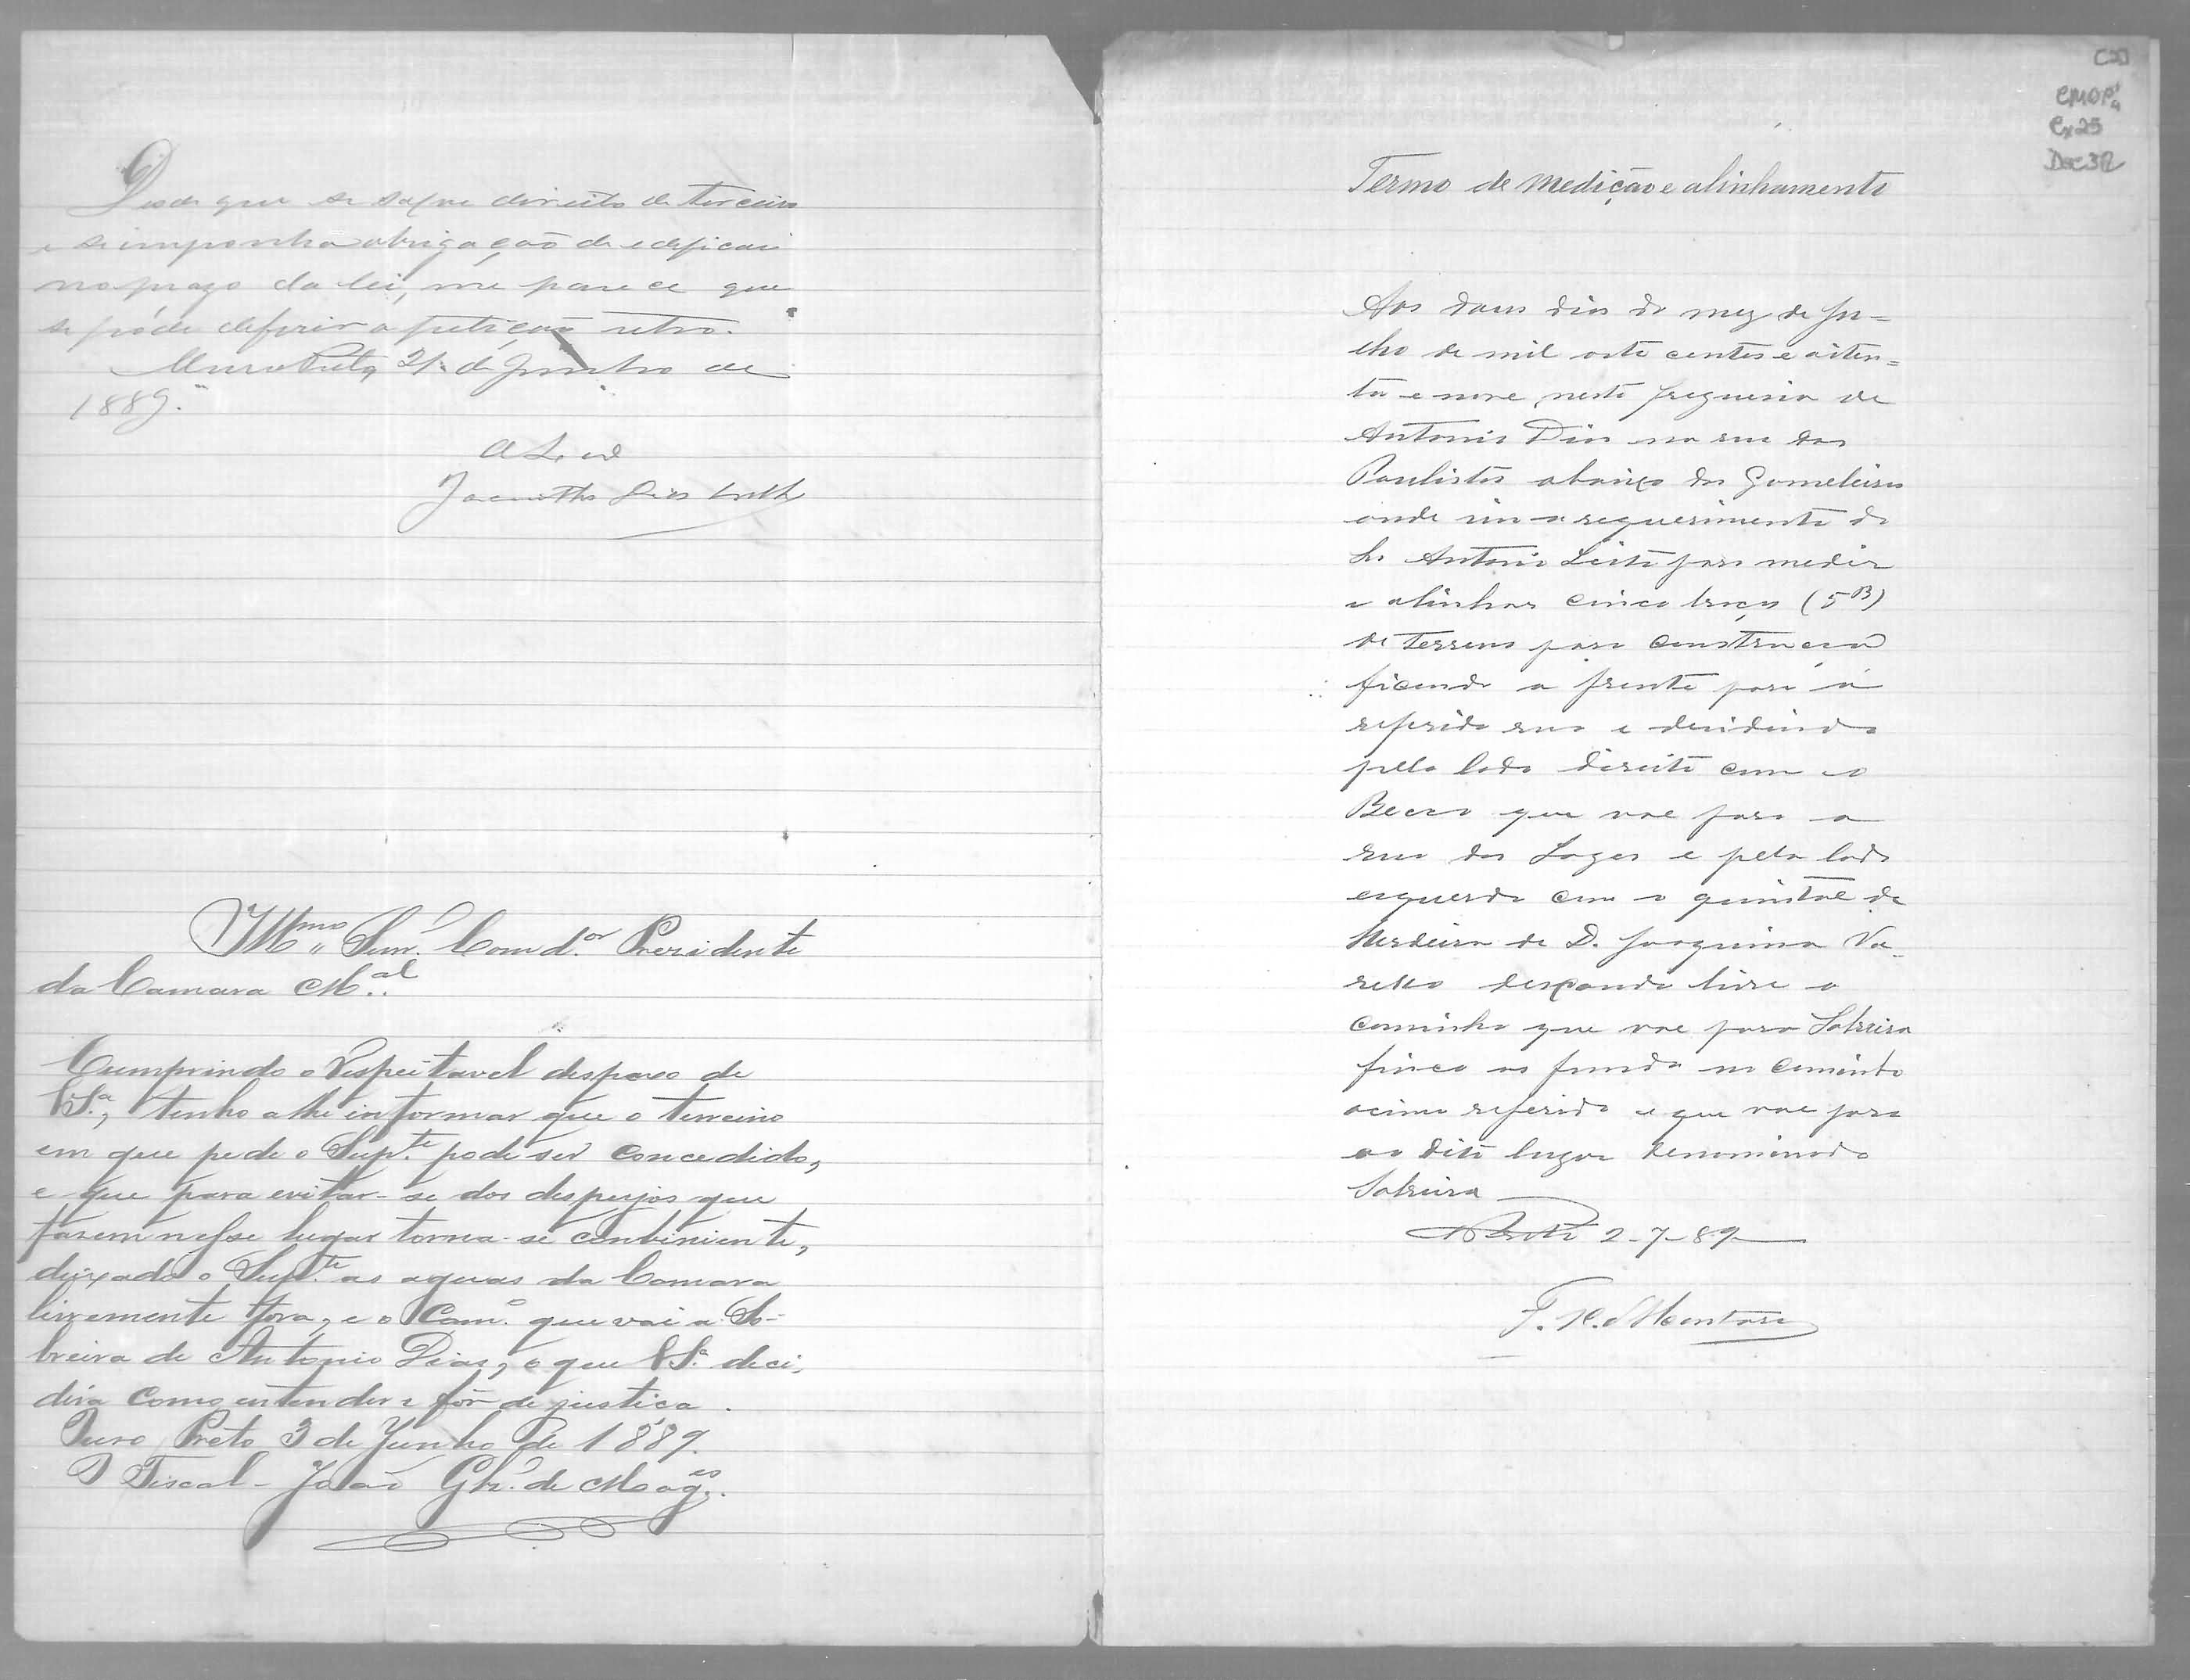 Desde que se salve direito de terceiro
e se imponha obrigação de edificar
no prazo da lei, me parece que
se póde deferir a petição retro.
Ouro Preto, 21 de Junho de
1889.
Jacintho Dias
Illmo Snr. Comdor Presidente
da Camara Mal
Cumprindo o respeitavel despaxo de
VSa, tenho a lhe informar que o terreino
em que pede o Supte pode ser concedido,
e que para evitar-se dos despejos que
fasem nesse lugar torna-se conveniente,
deixado o Supte as aguas da Camara
livremente fora, e o Camo que vai a So-
breira de Antonio Dias, o que VSa deci-
dirá como entender e fôr de justiça.
Ouro Preto 3 de Junho de 1889.
O Fiscal - João Glz. de Mages.
CMOP
Cx 25
Doc 32
Termo de Medição e alinhamento
Aos dous dias do mez de Ju=
lho de mil oito centos e oiten=
ta e nove, nesta freguesia de
Antonio Dias na rua dos
Paulistas abaixo das Gameleiras
onde vim a requerimento do
Sr Antonio Leite para medir
e alinhar cinco braças (5B)
de terreno para construcção
ficando a frente para á
referida rua e devidindo
pello lado direito com o
Becco que vae para a
rua das Lages e pelo lado
esquerdo com o quintal da
Herdeira de D. Joaquina Va-
rella deixando livre o
caminho que vae para Sobreira
finco os fundos no caminho
acima referido e que vae para
ao dito lugar denominado
Sobreira
OPreto 2-7-89